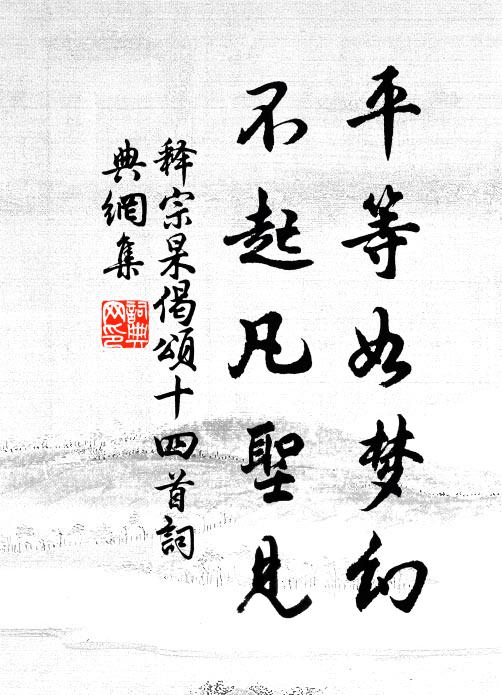 平等如梦幻
不起凡聖見
释宗杲偈頌十四首詞
典網集
詞典
网印